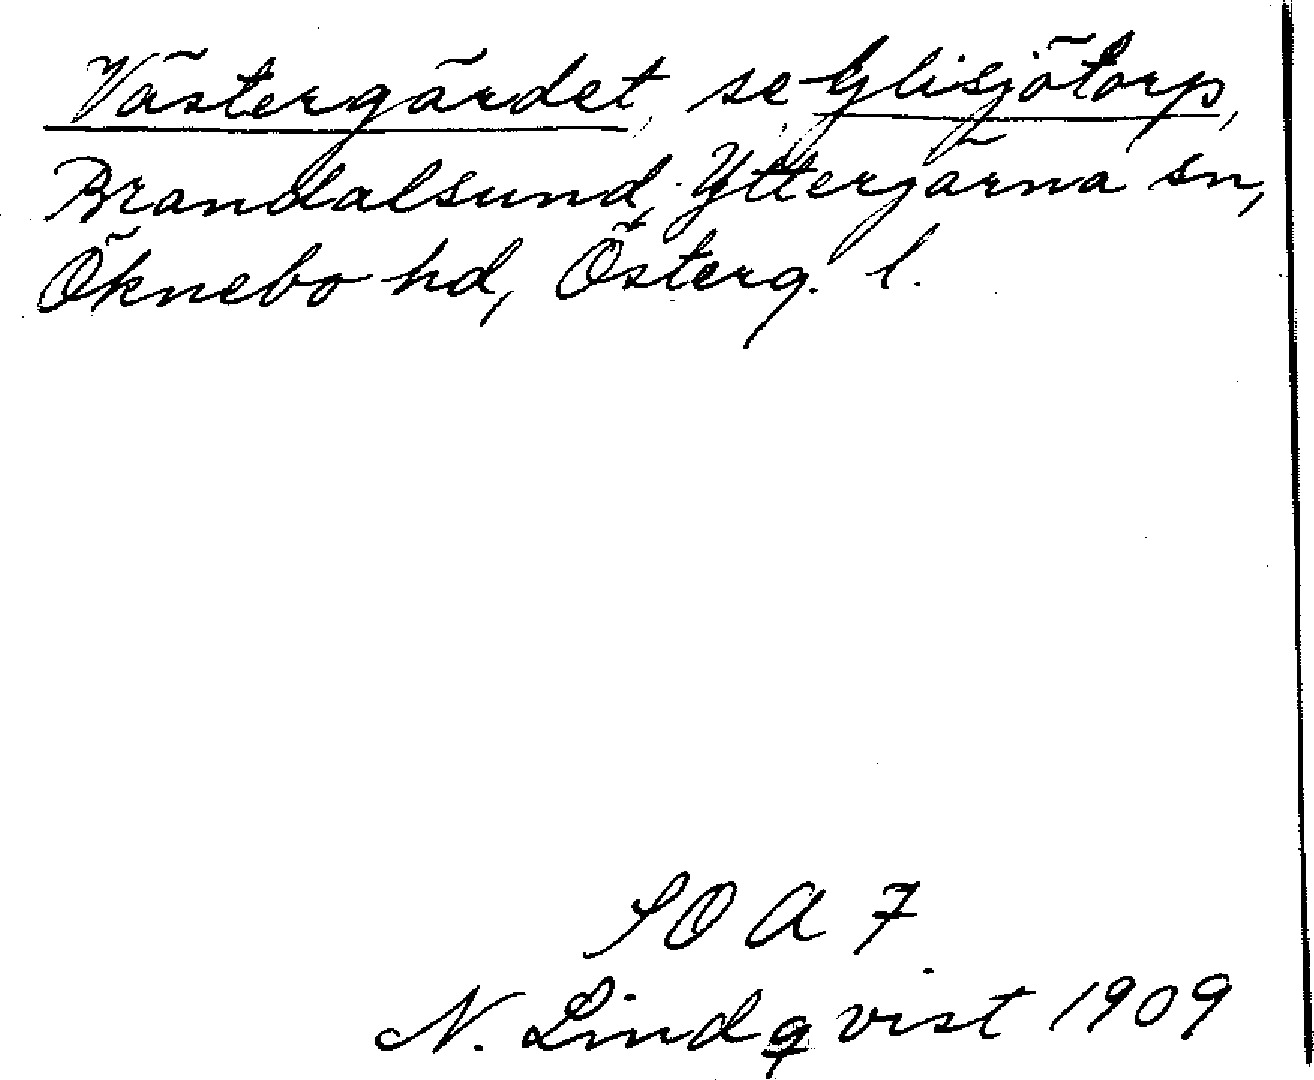 Västergärdet, se Glisjötorp,
Brandalsund, Ytterjärna sn,
Öknebo hd, Österg. l.
SOA 7
N. Lindqvist 1909